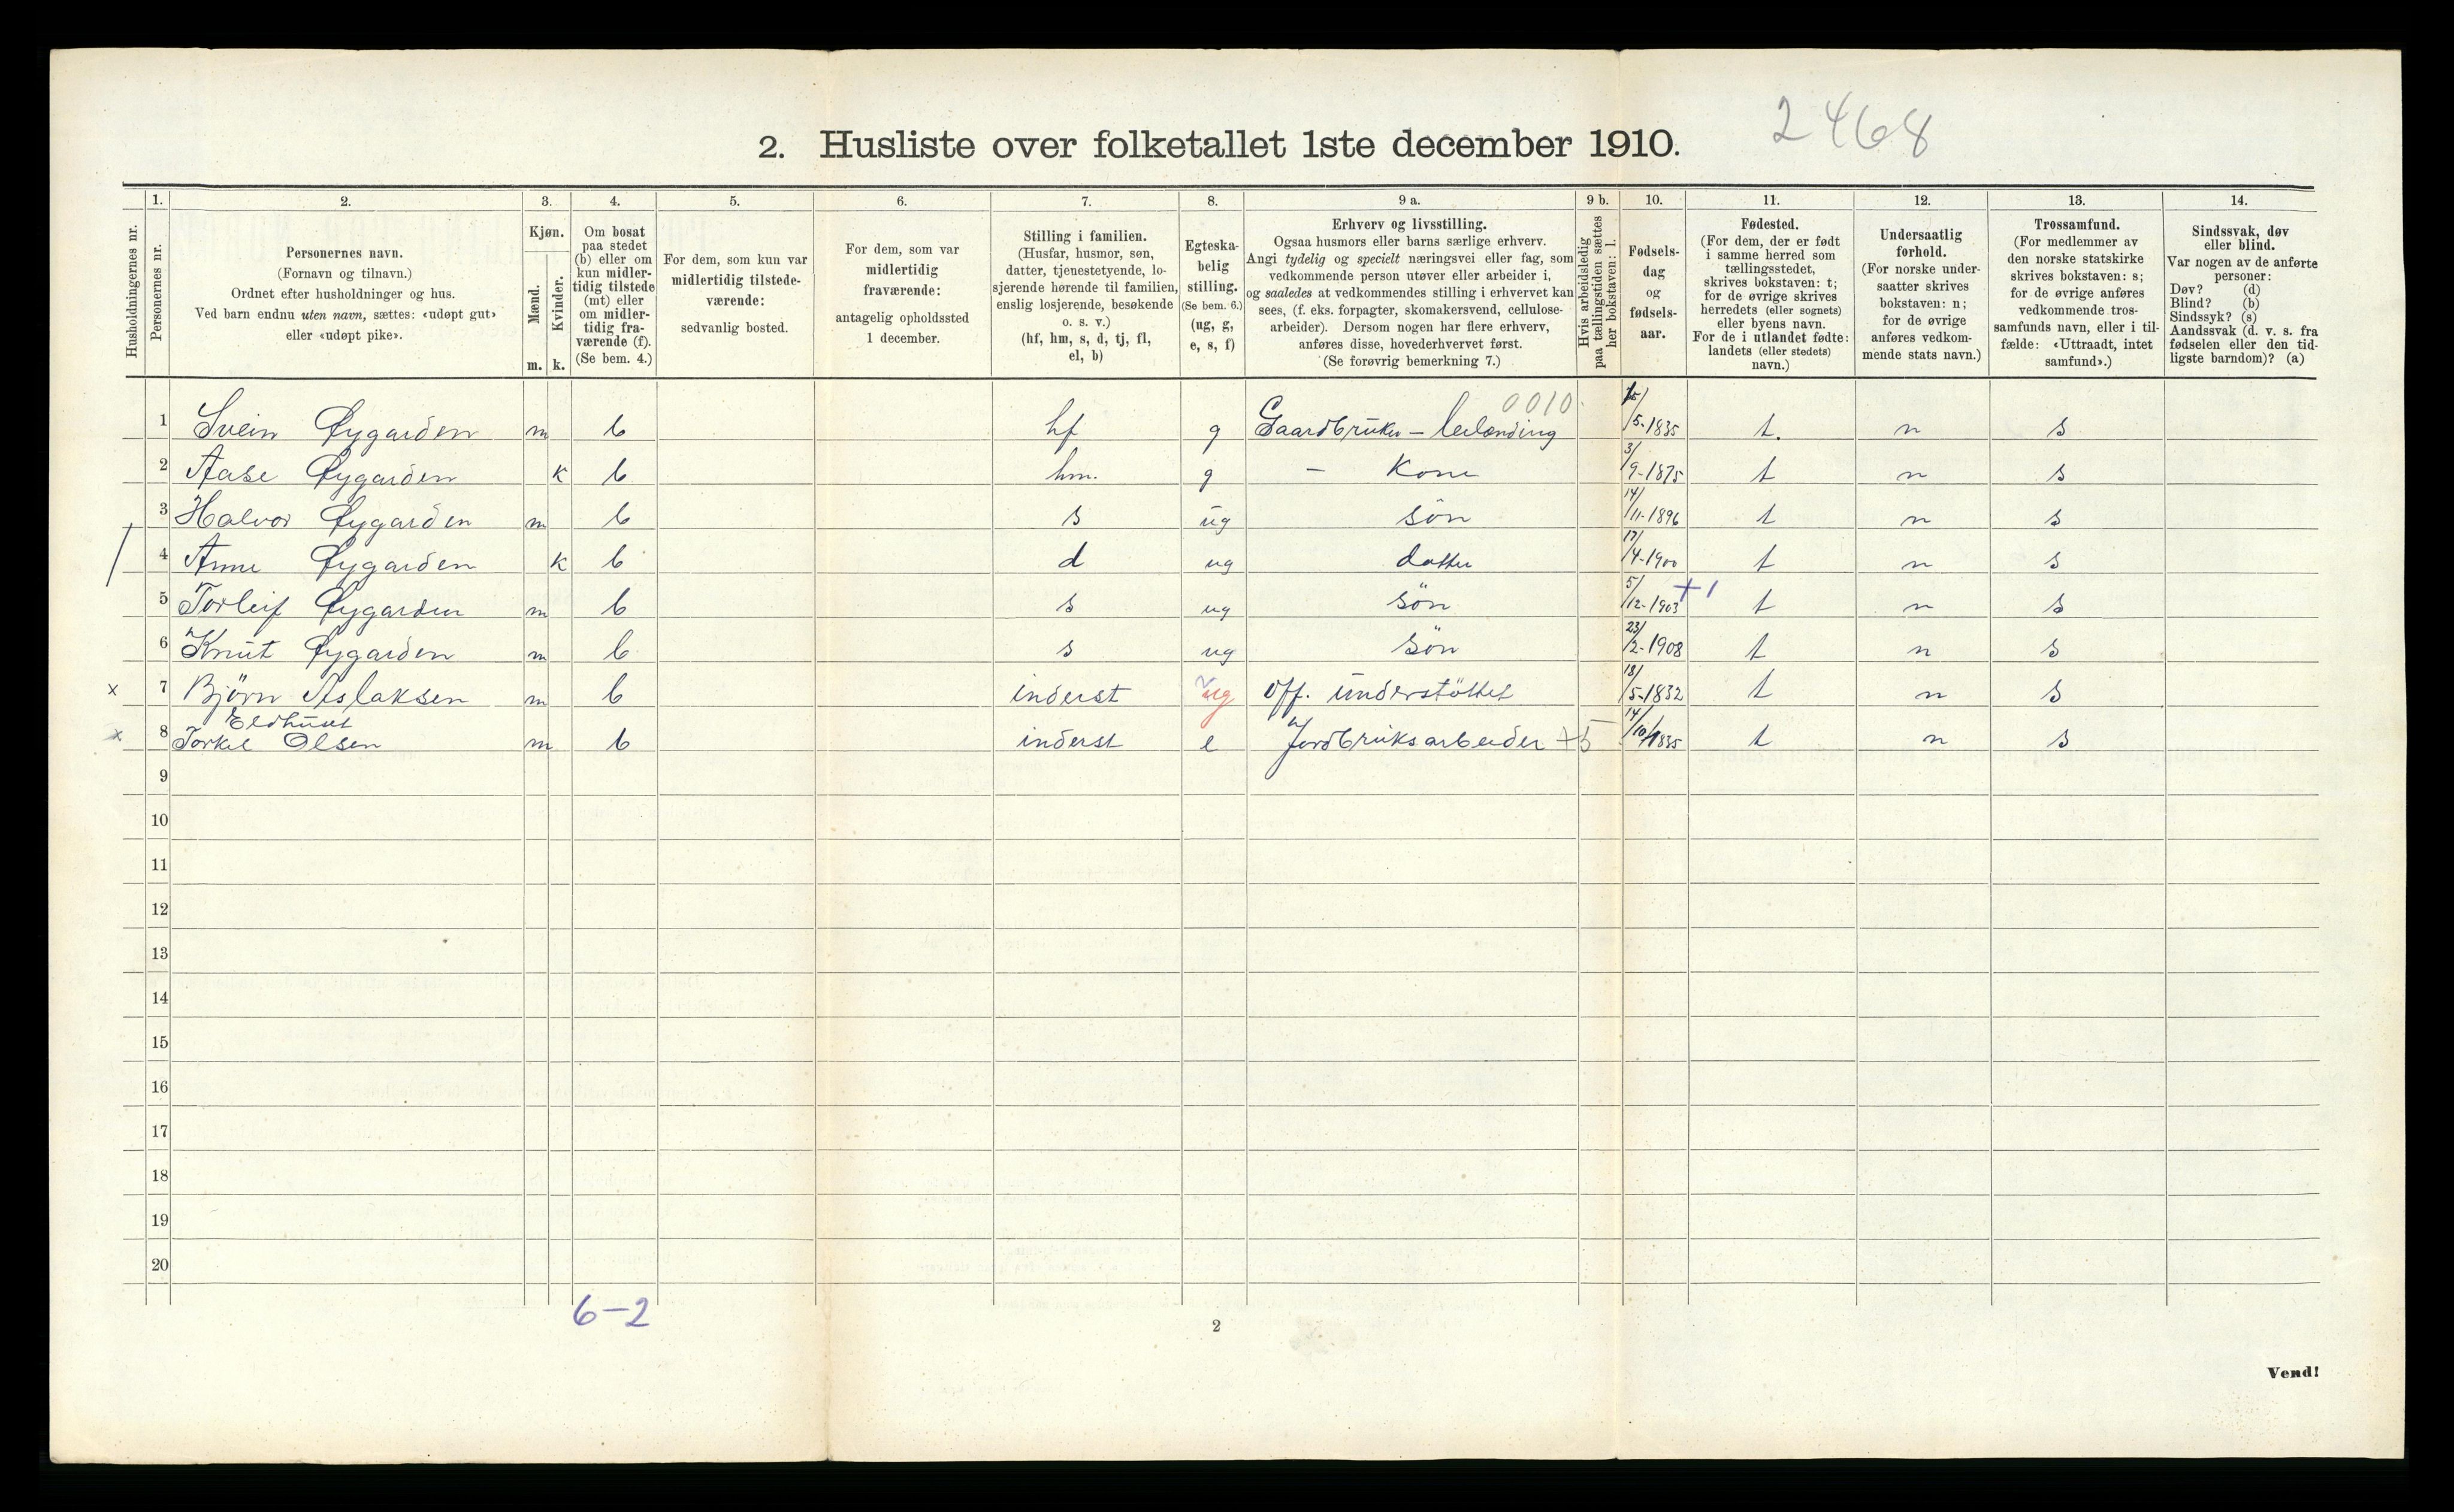 2468
2. Husliste over folketallet 1ste december 1910.
Husholdningernes nr.
1.
Personernes nr.
2.
Personernes navn.
(Fornavn og tilnavn.)
Ordnet efter husholdninger og hus.
Ved barn endnu uten navn, sættes: «udøpt gut»
eller «udøpt pike».
3.
Kjøn.
Mænd.
Kvinder.
m. k.
4.
Om bosat
paa stedet
(b) eller om
kun midler-
tidig tilstede
(mt) eller
om midler-
tidig fra-
værende (f).
(Se bem. 4.)
5.
For dem, som kun var
midlertidig tilstede-
værende:
sedvanlig bosted.
6.
For dem, som var
midlertidig
fraværende:
antagelig opholdssted
1 december.
7.
Stilling i familien.
(Husfar, husmor, søn,
datter, tjenestetyende, lo-
sjerende hørende til familien,
enslig losjerende, besøkende
o. s. v.)
(hf, hm, s, d, tj, fl,
el, b)
8.
Egteska-
belig
stilling.
(Se bem. 6.)
(ug, g,
e, s, f)
9 a.
Erhverv og livsstilling.
Ogsaa husmors eller barns særlige erhverv.
Angi tydelig og specielt næringsvei eller fag, som
vedkommende person utøver eller arbeider i,
og saaledes at vedkommendes stilling i erhvervet kan
sees, (f. eks. forpagter, skomakersvend, cellulose-
arbeider). Dersom nogen har flere erhverv,
anføres disse, hovederhvervet først.
(Se forøvrig bemerkning 7.)
9 b.
Hvis arbeidsledig
paa tællingstiden sættes
her bokstaven: l.
10.
Fødsels-
dag
og
fødsels-
aar.
11.
Fødested.
(For dem, der er født
i samme herred som
tællingsstedet,
skrives bokstaven: t;
for de øvrige skrives
herredets (eller sognets)
eller byens navn.
For de i utlandet fødte:
landets (eller stedets)
navn.)
12.
Undersaatlig
forhold.
(For norske under-
saatter skrives
bokstaven: n;
for de øvrige
anføres vedkom-
mende stats navn.)
13.
Trossamfund.
(For medlemmer av
den norske statskirke
skrives bokstaven: s;
for de øvrige anføres
vedkommende tros-
samfunds navn, eller i til-
fælde: «Uttraadt, intet
samfund».)
14.
Sindssvak, døv
eller blind.
Var nogen av de anførte
personer:
Døv? (d)
Blind? (b)
Sindssyk? (s)
Aandssvak (d. v. s. fra
fødselen eller den tid-
ligste barndom)? (a)
0010
1 Svein Øygarden m b hf g Gaardbruker – leilænding /5-1835 t. n s
2 Aase Øygarden k b hm. g – Kone 3/9-1875 t n s
3 Halvor Øygarden m b s ug søn 14/11-1896 t n s
4 Anne Øygarden k b d ug datter 17/4-1900 t n s
5 Torleif Øygarden m b s ug søn 5/12-1903 +1 t n s
6 Knut Øygarden m b s ug søn 23/2-1908 t n s
x 7 Bjørn Aslaksen m b inderst ug off. understøttet 18/5-1832 t n s
Eldhuset
x 8 Torkel Olsen m b inderst e Jordbruksarbeider +5 14/10 1835 t n s
9
10
11
12
13
14
15
16
17
18
19
20
6–2
2
Vend!